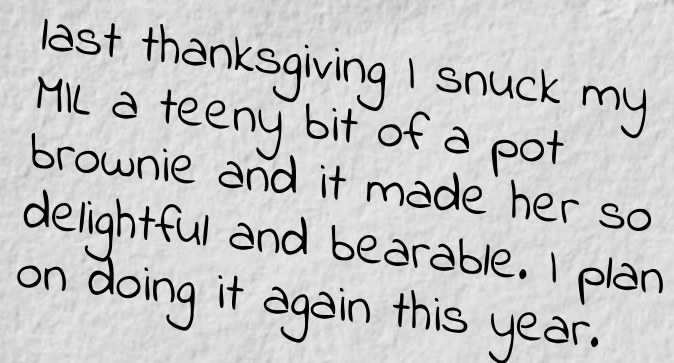 last thanksgiving I snuck my
MIL a teeny bit of a pot
brownie and it made her so
delightful and bearable. I plan
on doing it again this year.